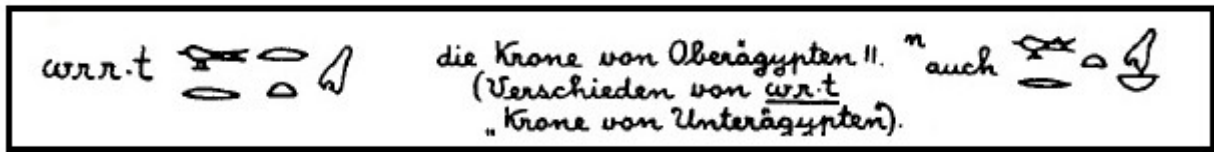 wrr.t 𓅨𓂋𓂋𓏏𓋑 die Krone von Oberägypten II. n auch 𓅨𓂋𓏏𓋒
(Verschieden von wr.t
„Krone von Unterägypten").